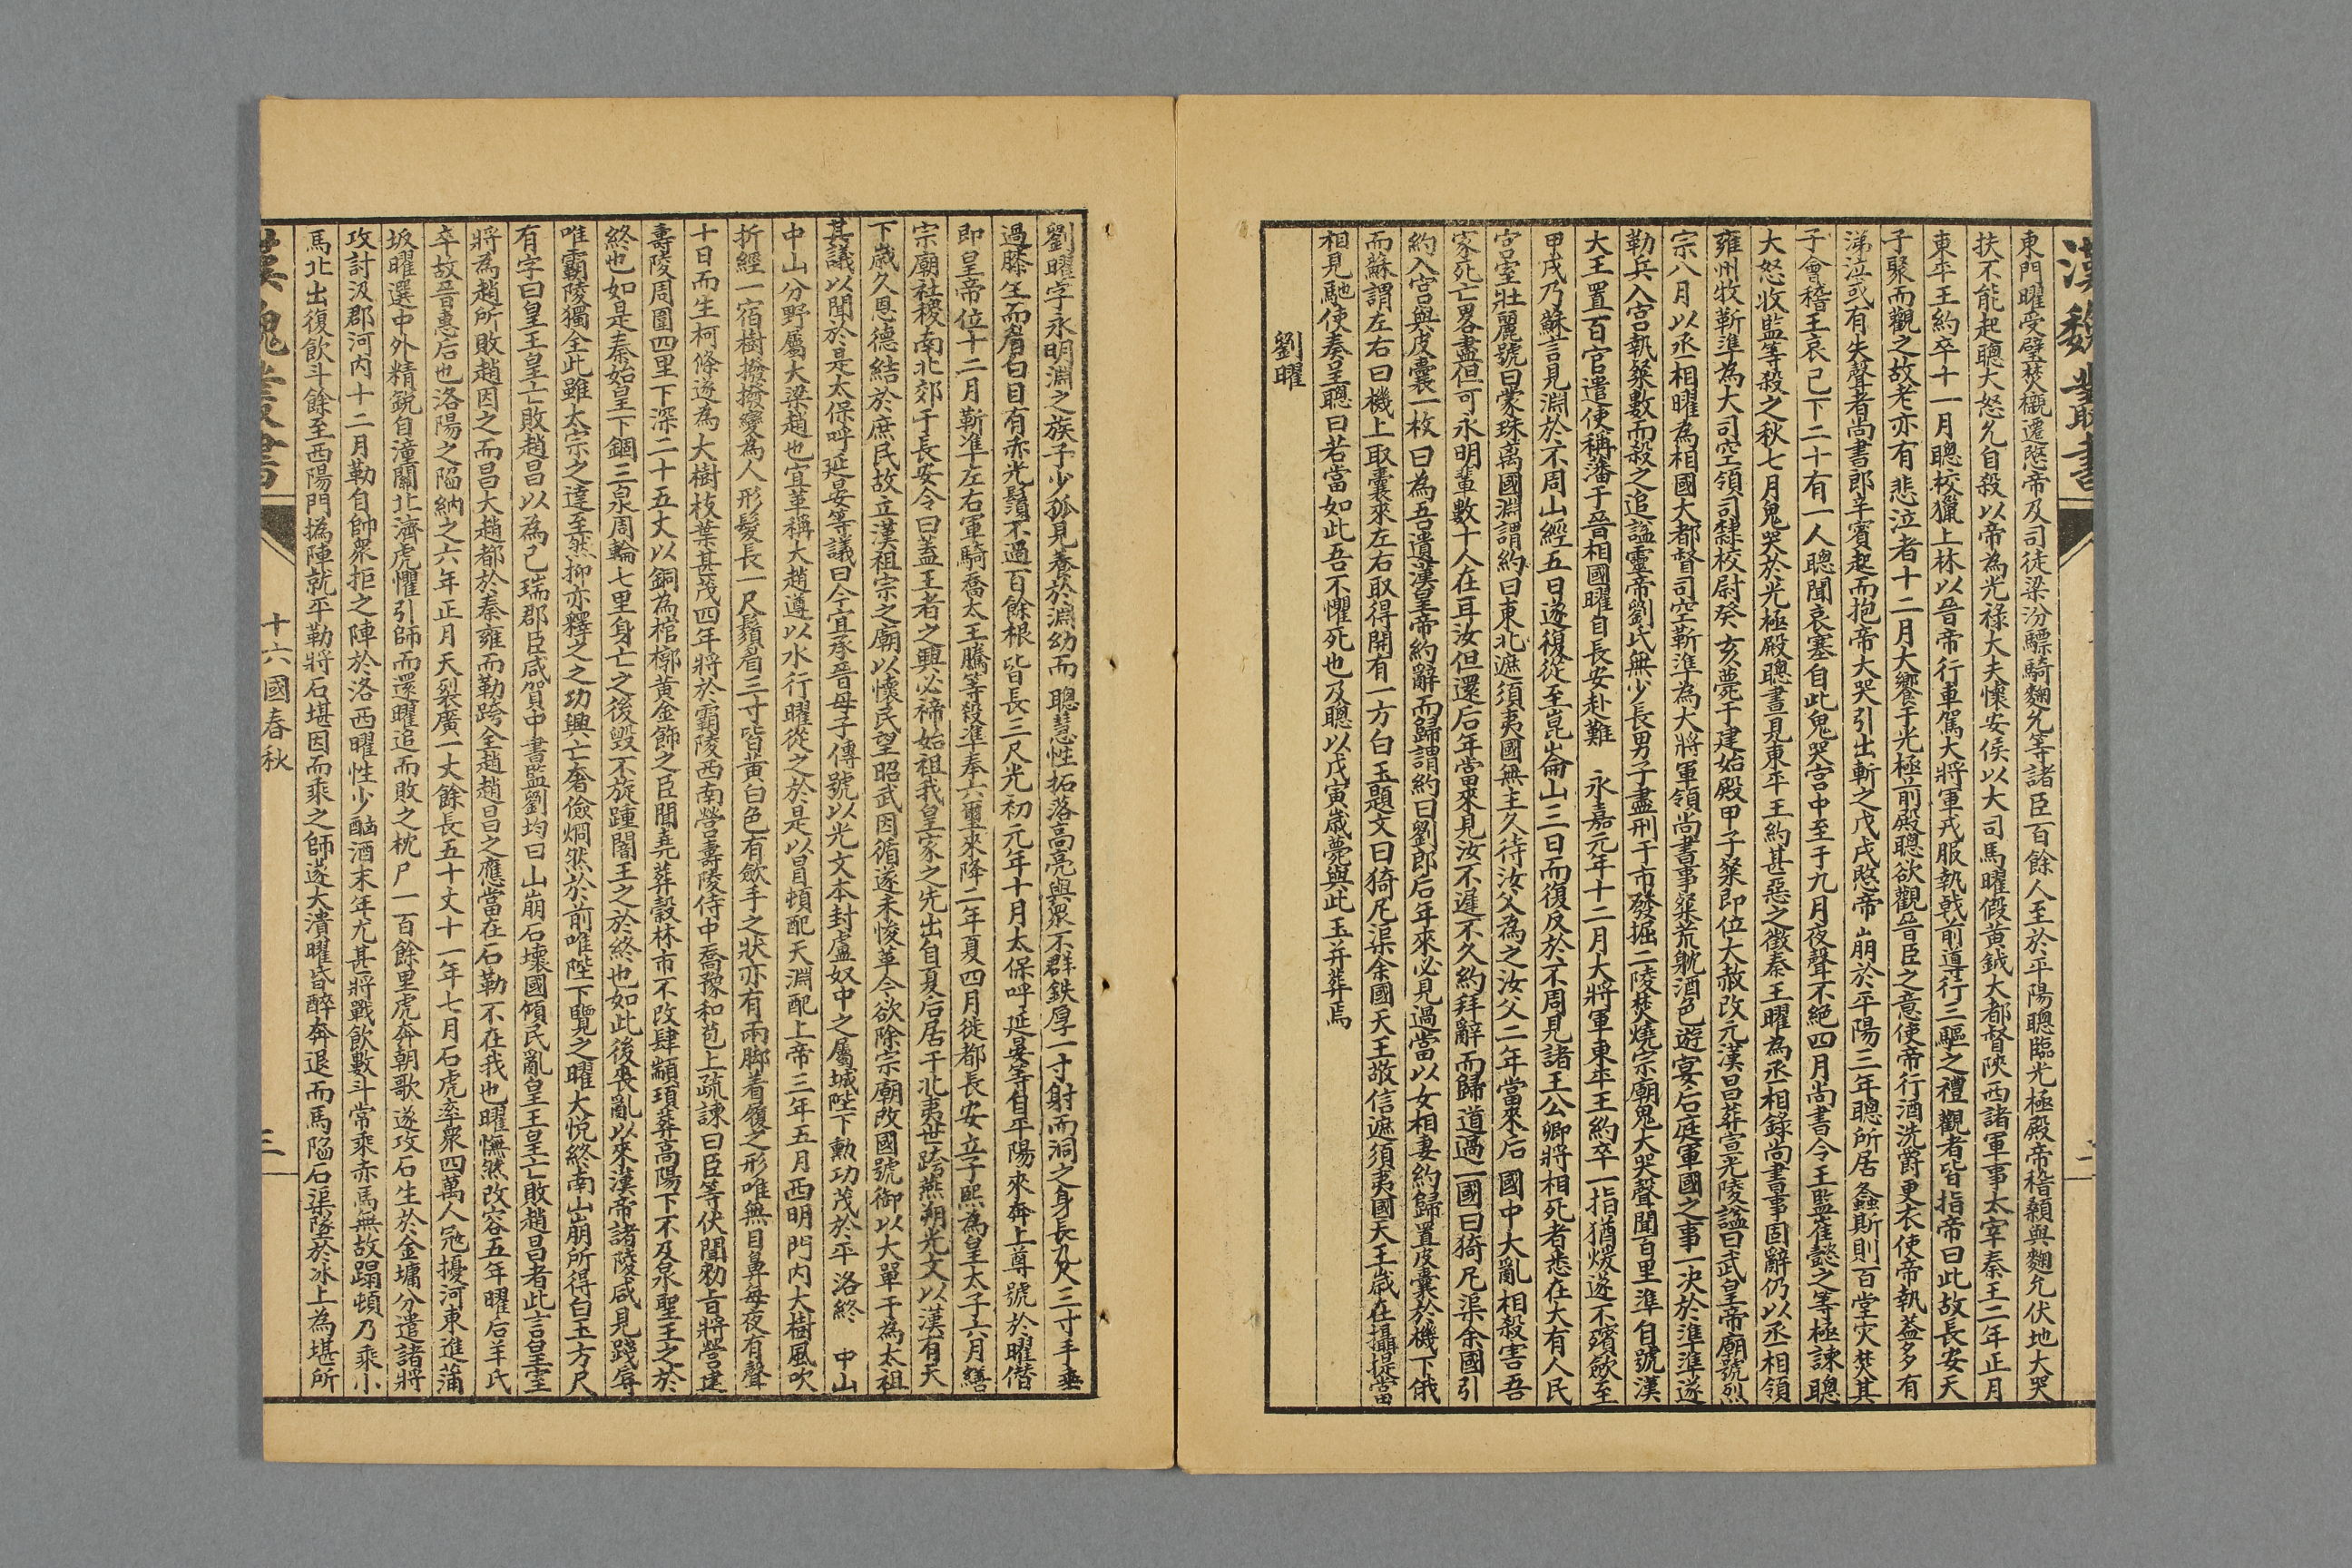 漢魏叢書
二
東門曜受璧焚櫬遷愍帝及司徒梁汾驃騎麴允等諸臣百餘人至於平陽聰臨光極殿帝稽顙與麴允伏地大哭
扶不能起聰大怒允自殺以帝為光祿大夫懷安侯以大司馬曜假黃鉞大都督陝西諸軍事太宰秦王二年正月
東平王約卒十一月聰校獵上林以晉帝行車駕大將軍戎服執戟前導行三驅之禮觀者皆指帝曰此故長安天
子聚而觀之故老亦有悲泣者十二月大饗于光極前殿聰欲觀晉臣之意使帝行酒洗爵更衣使帝執蓋多有
涕泣或有失聲者尚書郎辛賓起而抱帝大哭引出斬之戊戌愍帝崩於平陽三年聰所居螽斯則百堂灾焚其
子會稽王衷已下二十有一人聰聞哀塞自此鬼哭宮中至于九月夜聲不絕四月尚書令王監崔懿之等極諫聰
大怒收監等殺之秋七月鬼哭於光極殿聰晝見東平王約甚惡之徵秦王曜為丞相錄尚書事固辭仍以丞相領
雍州牧靳準為大司空領司隸校尉癸亥薨于建始殿甲子粲即位大赦改元漢昌葬宣光陵謚曰武皇帝廟號烈
宗八月以丞相曜為相國大都督司空靳準為大將軍領尚書事粲荒躭酒色遊宴后庭軍國之事一決於準準遂
勒兵入宮執粲數而殺之追謚靈帝劉氏無少長男子盡刑于市發掘二陵焚燒宗廟鬼大哭聲聞百里準自號漢
大王置百官遣使稱藩于晉相國曜自長安赴難　永嘉元年十二月大將軍東平王約卒一指猶煖遂不殯歛至
甲戌乃蘇言見淵於不周山經五日遂復從至崑崙山三日而復反於不周見諸王公卿將相死者悉在大有人民
宮室壯麗號曰蒙珠萬國淵謂約曰東北遮須夷國無主久待汝父為之汝父二年當來后國中大亂相殺害吾
家死亡畧盡但可永明輩數十人在耳汝但還后年當來見汝不遲不久約拜辭而歸道過一國曰猗尼渠余國引
約入宮與皮囊一枚曰為吾遺漢皇帝約辭而歸謂約曰劉郎后年來必見過當以女相妻約歸置皮囊於機下俄
而蘇謂左右曰機上取囊來左右取得開有一方白玉題文曰猗尼渠余國天王敬信遮須夷國天王歲在攝提當
相見馳使奏呈聰曰若當如此吾不懼死也及聰以戊寅歲薨與此玉并葬焉
劉曜
劉曜字永明淵之族子少孤見養於淵幼而聰慧性拓落高亮與衆不群鉄厚一寸射而洞之身長九尺三寸手垂
過膝生而眉白目有赤光鬚不過百餘根皆長三尺光初元年十月太保呼延晏等自平陽來奔上尊號於曜僭
即皇帝位十二月靳準左右軍騎喬太王騰等殺準奉六璽來降二年夏四月徙都長安立子熙為皇太子六月繕
宗廟社稷南北郊于長安令曰蓋王者之興必禘始祖我皇家之先出自夏后居于北夷世跨燕朔光文以漢有天
下歲久恩德結於庶民故立漢祖宗之廟以懷民望昭武因循遂未悛革今欲除宗廟改國號御以大單于為太祖
其議以聞於是太保呼延晏等議曰今宜承晉母子傳號以光文本封盧奴中之屬城陛下勳功茂於平洛終　中山
中山分野屬大梁趙也宜革稱大趙遵以水行曜從之於是以冒頓配天淵配上帝三年五月西明門內大樹風吹
折經一宿樹撥撥變為人形髮長一尺鬚眉三寸皆黃白色有歛手之狀亦有兩脚着履之形唯無目鼻每夜有聲
十日而生柯條遂為大樹枝葉甚茂四年將於霸陵西南營壽陵侍中喬豫和苞上疏諫曰臣等伏聞勑旨將營建
壽陵周圍四里下深二十五丈以銅為棺槨黃金飾之臣聞堯葬穀林市不改肆顓頊葬高陽下不及泉聖王之於
終也如是秦始皇下錮三泉周輪七里身亡之後毀不旋踵闇王之於終也如此後喪亂以來漢帝諸陵咸見踐辱
唯霸陵獨全此雖太宗之達至然抑亦釋之之功興亡奢儉烱然於前唯陛下覽之曜大悅終南山崩所得白玉方尺
有字曰皇王皇亡敗趙昌以為己瑞郡臣咸賀中書監劉均曰山崩石壞國傾民亂皇王皇亡敗趙昌者此言皇室
將為趙所敗趙因之而昌大趙都於秦雍而勒跨全趙趙昌之應當在石勒不在我也曜憮然改容五年曜后羊氏
卒故晉惠后也洛陽之陷納之六年正月天裂廣一丈餘長五十丈十一年七月石虎率衆四萬人冦擾河東進蒲
坂曜選中外精銳自潼關北濟虎懼引師而還曜追而敗之枕尸一百餘里虎奔朝歌遂攻石生於金墉分遣諸將
攻討汲郡河內十二月勒自帥衆拒之陣於洛西曜性少酗酒末年尤甚將戰飲數斗常乘赤馬無故蹋頓乃乘小
馬北出復飲斗餘至西陽門撝陣就平勒將石堪因而乘之師遂大潰曜昏醉奔退而馬陷石渠墜於冰上為堪所
漢魏叢書
十六國春秋
三